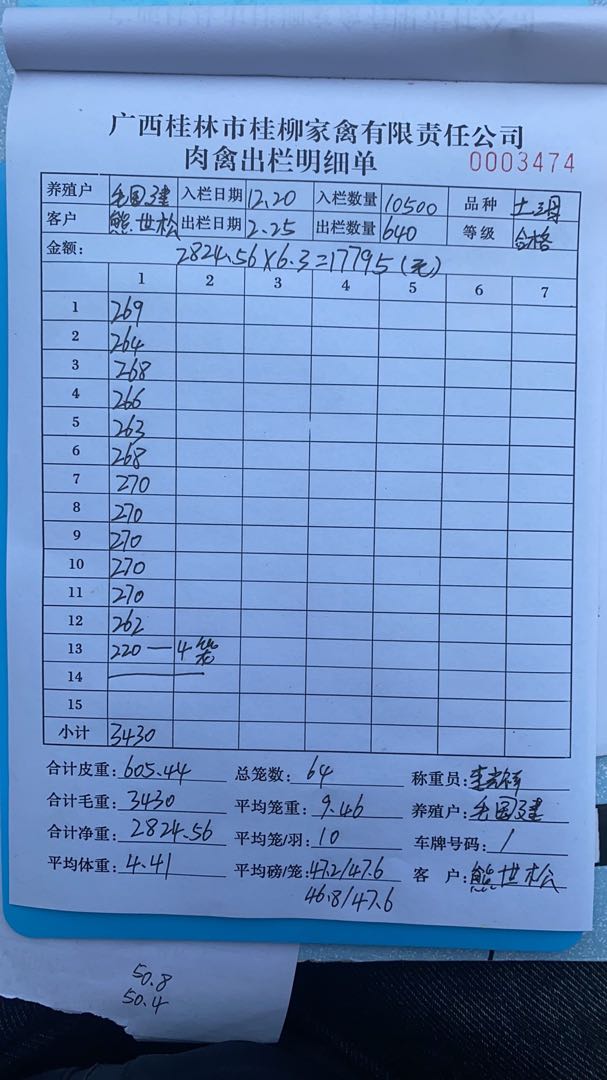 广西桂林市桂柳家禽有限责任公司
肉禽出栏明细单 0003474
养殖户 毛国建 入栏日期 12.20 入栏数量 10500 品种 土鸡
客户 熊世松 出栏日期 2.25 出栏数量 640 等级 合格
金额: 2824.56×6.3=17795(元)
1 2 3 4 5 6 7
1 269
2 264
3 268
4 266
5 263
6 268
7 270
8 270
9 270
10 270
11 270
12 262
13 220 — 4笼
14
15
小计 3430
合计皮重: 605.44 总笼数: 64 称重员:
合计毛重: 3430 平均笼重: 9.46 养殖户: 毛国建
合计净重: 2824.56 平均笼/羽: 10 车牌号码: /
平均体重: 4.41 平均磅/笼: 47.2/47.6 客 户: 熊世松
46.8/47.6
50.8
50.4